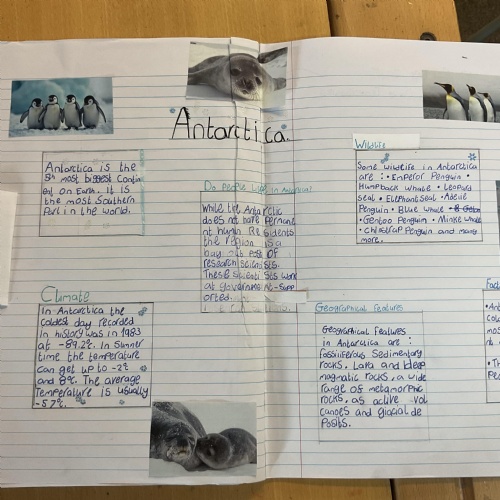 Antarctica.
Antarctica is the
5th most biggest Contin
ent on Earth. It is
the most Southern
Part in the world.
Do People Live in
While the Antarctic
does not have Perman
nt human Residents
the region is a
busy out Post of
research scientists.
These scientists work
at government-supp
orted.
Wildlife
Some wildlife in Antarctica
are : • Emperor Penguin •
Humpback whale • Leopard
seal • Elephant Seal • Adelie
Penguin • Blue whale
• Gentoo Penguin • Minke whale
• Chinstrap Penguin and many
more.
Climate
In Antarctica the
coldest day recorded
in history was in 1983
at -89.2°c. In Summer
time the temperature
can get up to -2°c
and 8°c. The average
Temperature is usually
-57°c.
Geographical Features
Geographical Features
in Antarctica are :
Fossiliferous Sedimentary
rocks, Lava and deep
magmatic rocks, a wide
range of metamorphic
rocks, as active vol
canoes and glacial de
Posits.
Fact
• Ant
cold
mos
nt
• Th
P